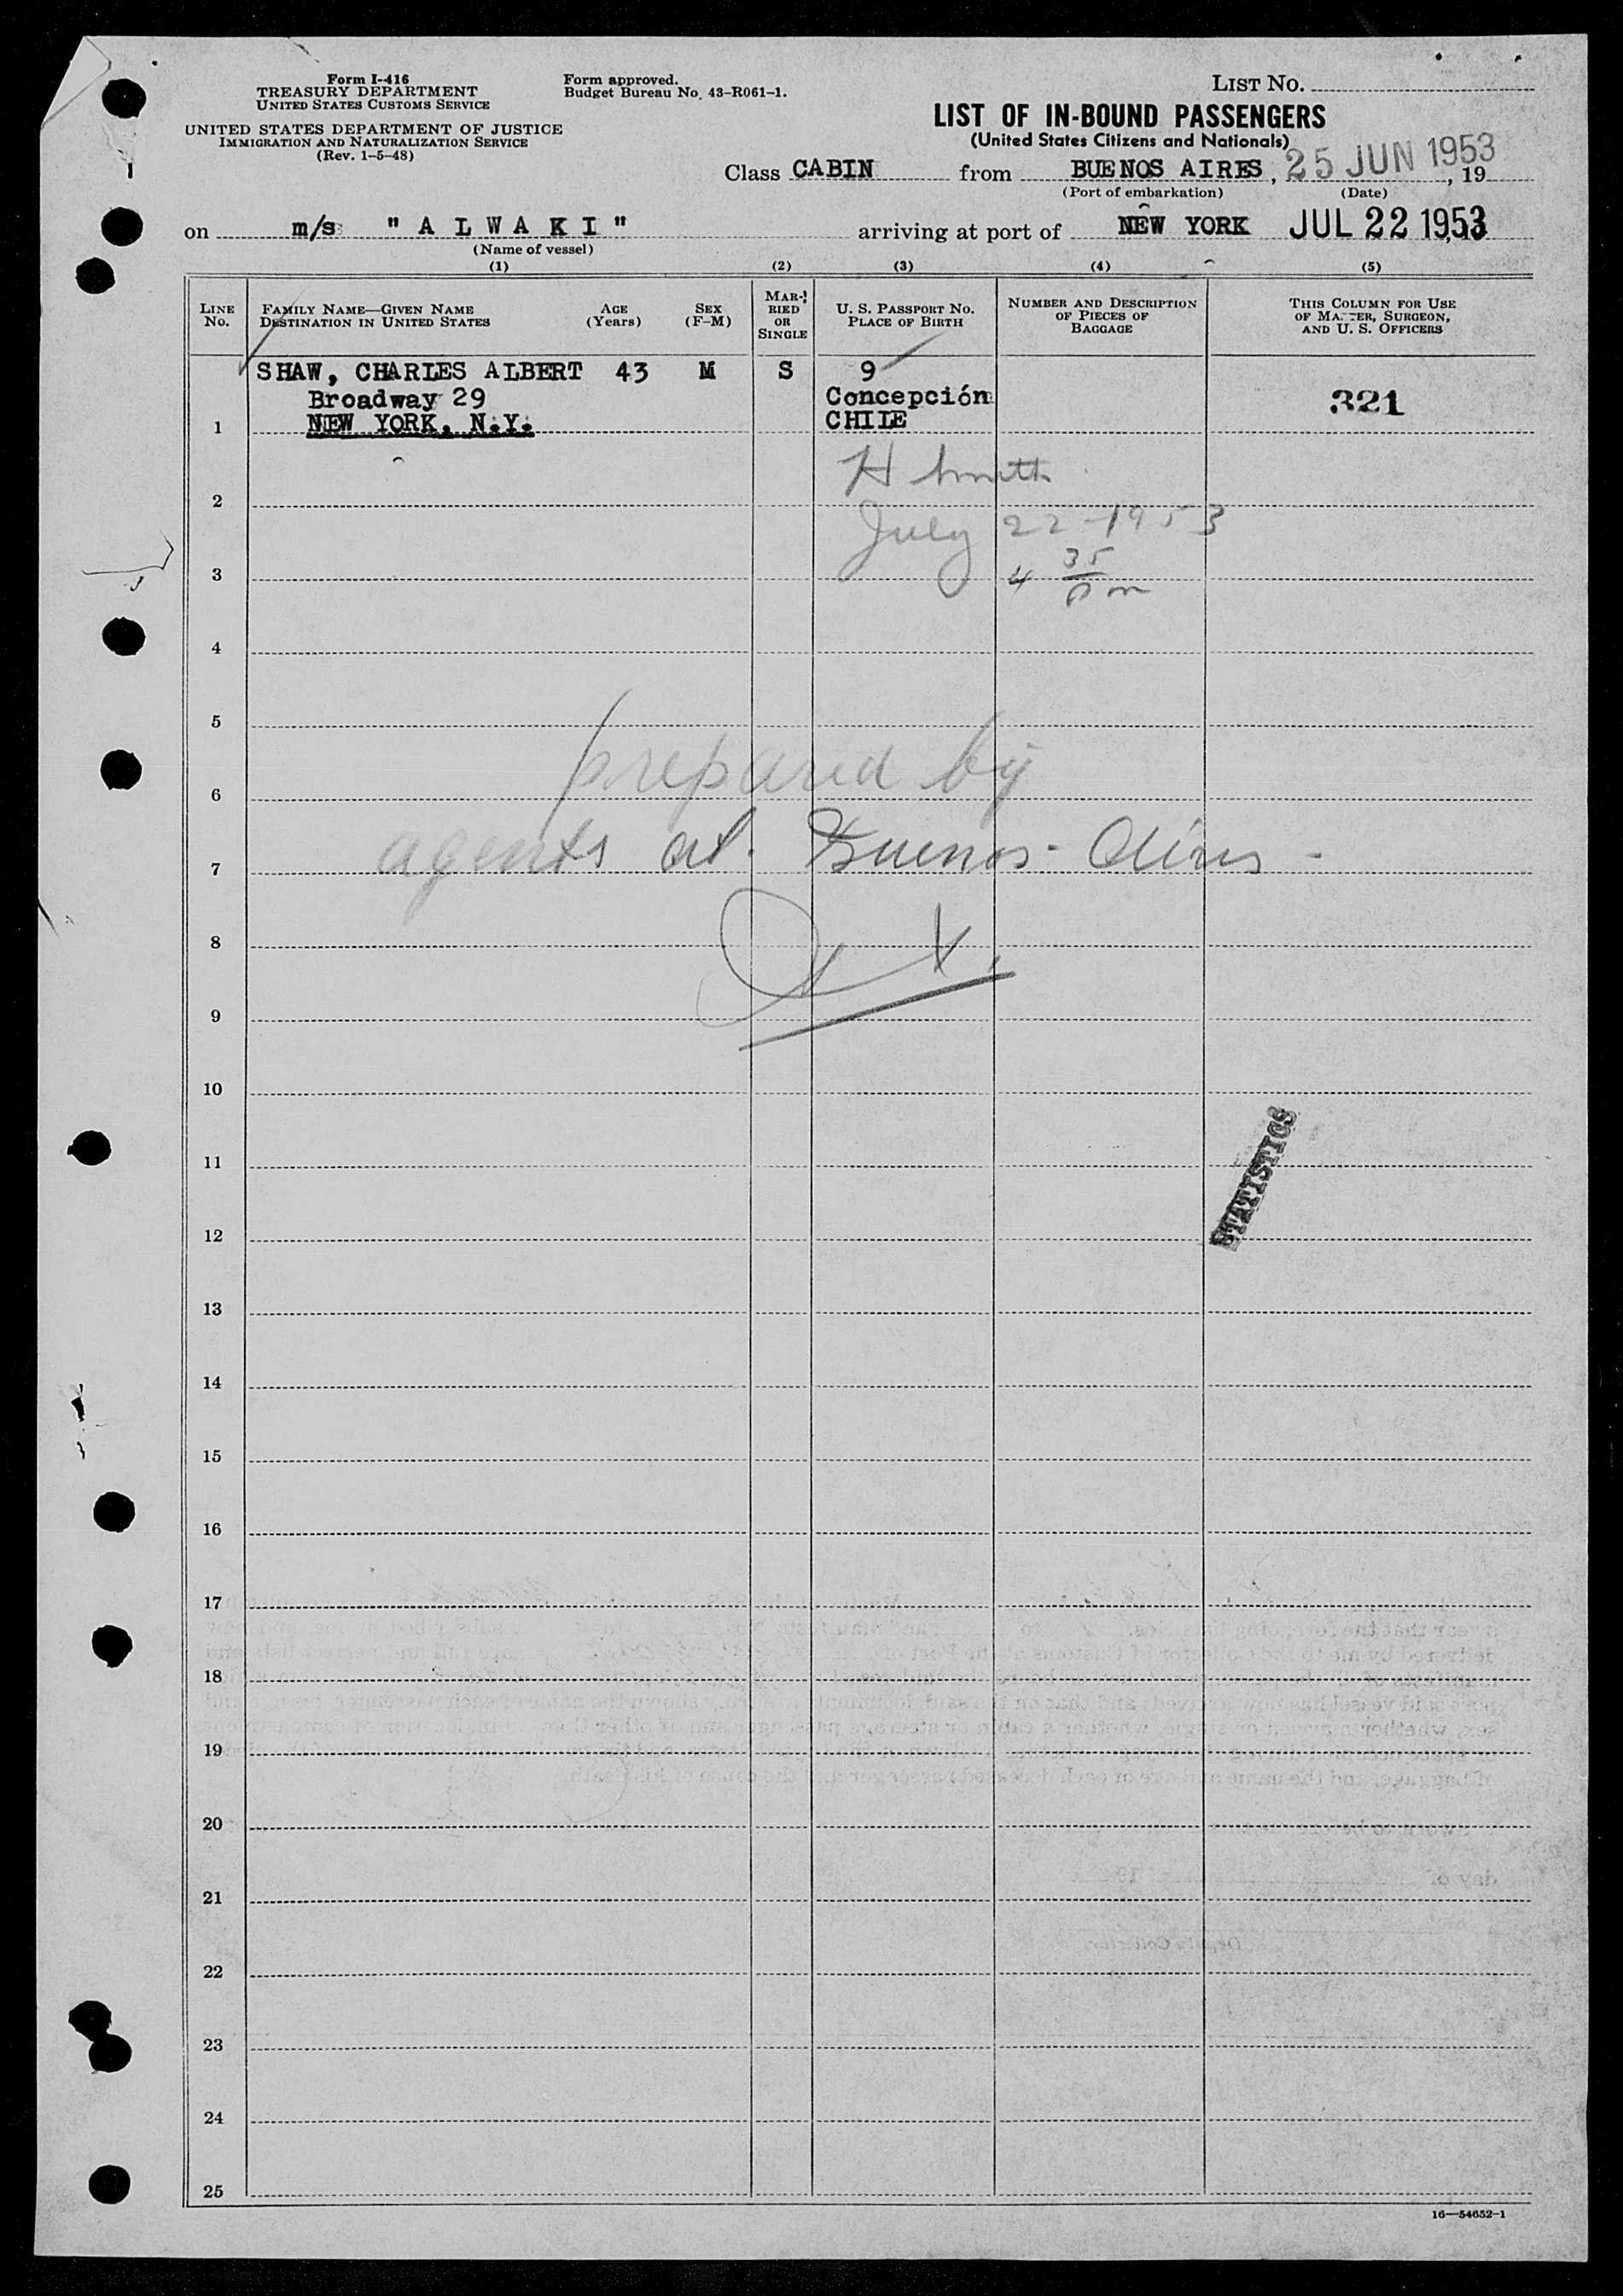 Form I-416
TREASURY DEPARTMENT
UNITED STATES CUSTOMS SERVICE
UNITED STATES DEPARTMENT OF JUSTICE
IMMIGRATION AND NATURALIZATION SERVICE
(Rev. 1-5-48)
Form approved.
Budget Bureau No. 43-R061-1.
LIST NO.
LIST OF IN-BOUND PASSENGERS
(United States Citizens and Nationals)
Class CABIN from BUENOS AIRES, 25 JUN 1953, 19
(Port of embarkation) (Date)
on m/s "ALWAKI" arriving at port of NEW YORK JUL 22 1953
(Name of vessel)
(1) (2) (3) (4) (5)
LINE No.
FAMILY NAME—GIVEN NAME
DESTINATION IN UNITED STATES
AGE (Years)
SEX (F-M)
MARRIED OR SINGLE
U. S. PASSPORT NO.
PLACE OF BIRTH
NUMBER AND DESCRIPTION OF PIECES OF BAGGAGE
THIS COLUMN FOR USE OF MASTER, SURGEON, AND U. S. OFFICERS
SHAW, CHARLES ALBERT 43 M S 9
Broadway 29 Concepción 321
1 NEW YORK, N.Y. CHILE
H Smith
2
July 22-1953
3 4 35 pm
4
5
prepared by
6
agents at Buenos-Aires-
7
8
9
10
11
STATISTICS
12
13
14
15
16
17
18
19
20
21
22
23
24
25
16—54652-1